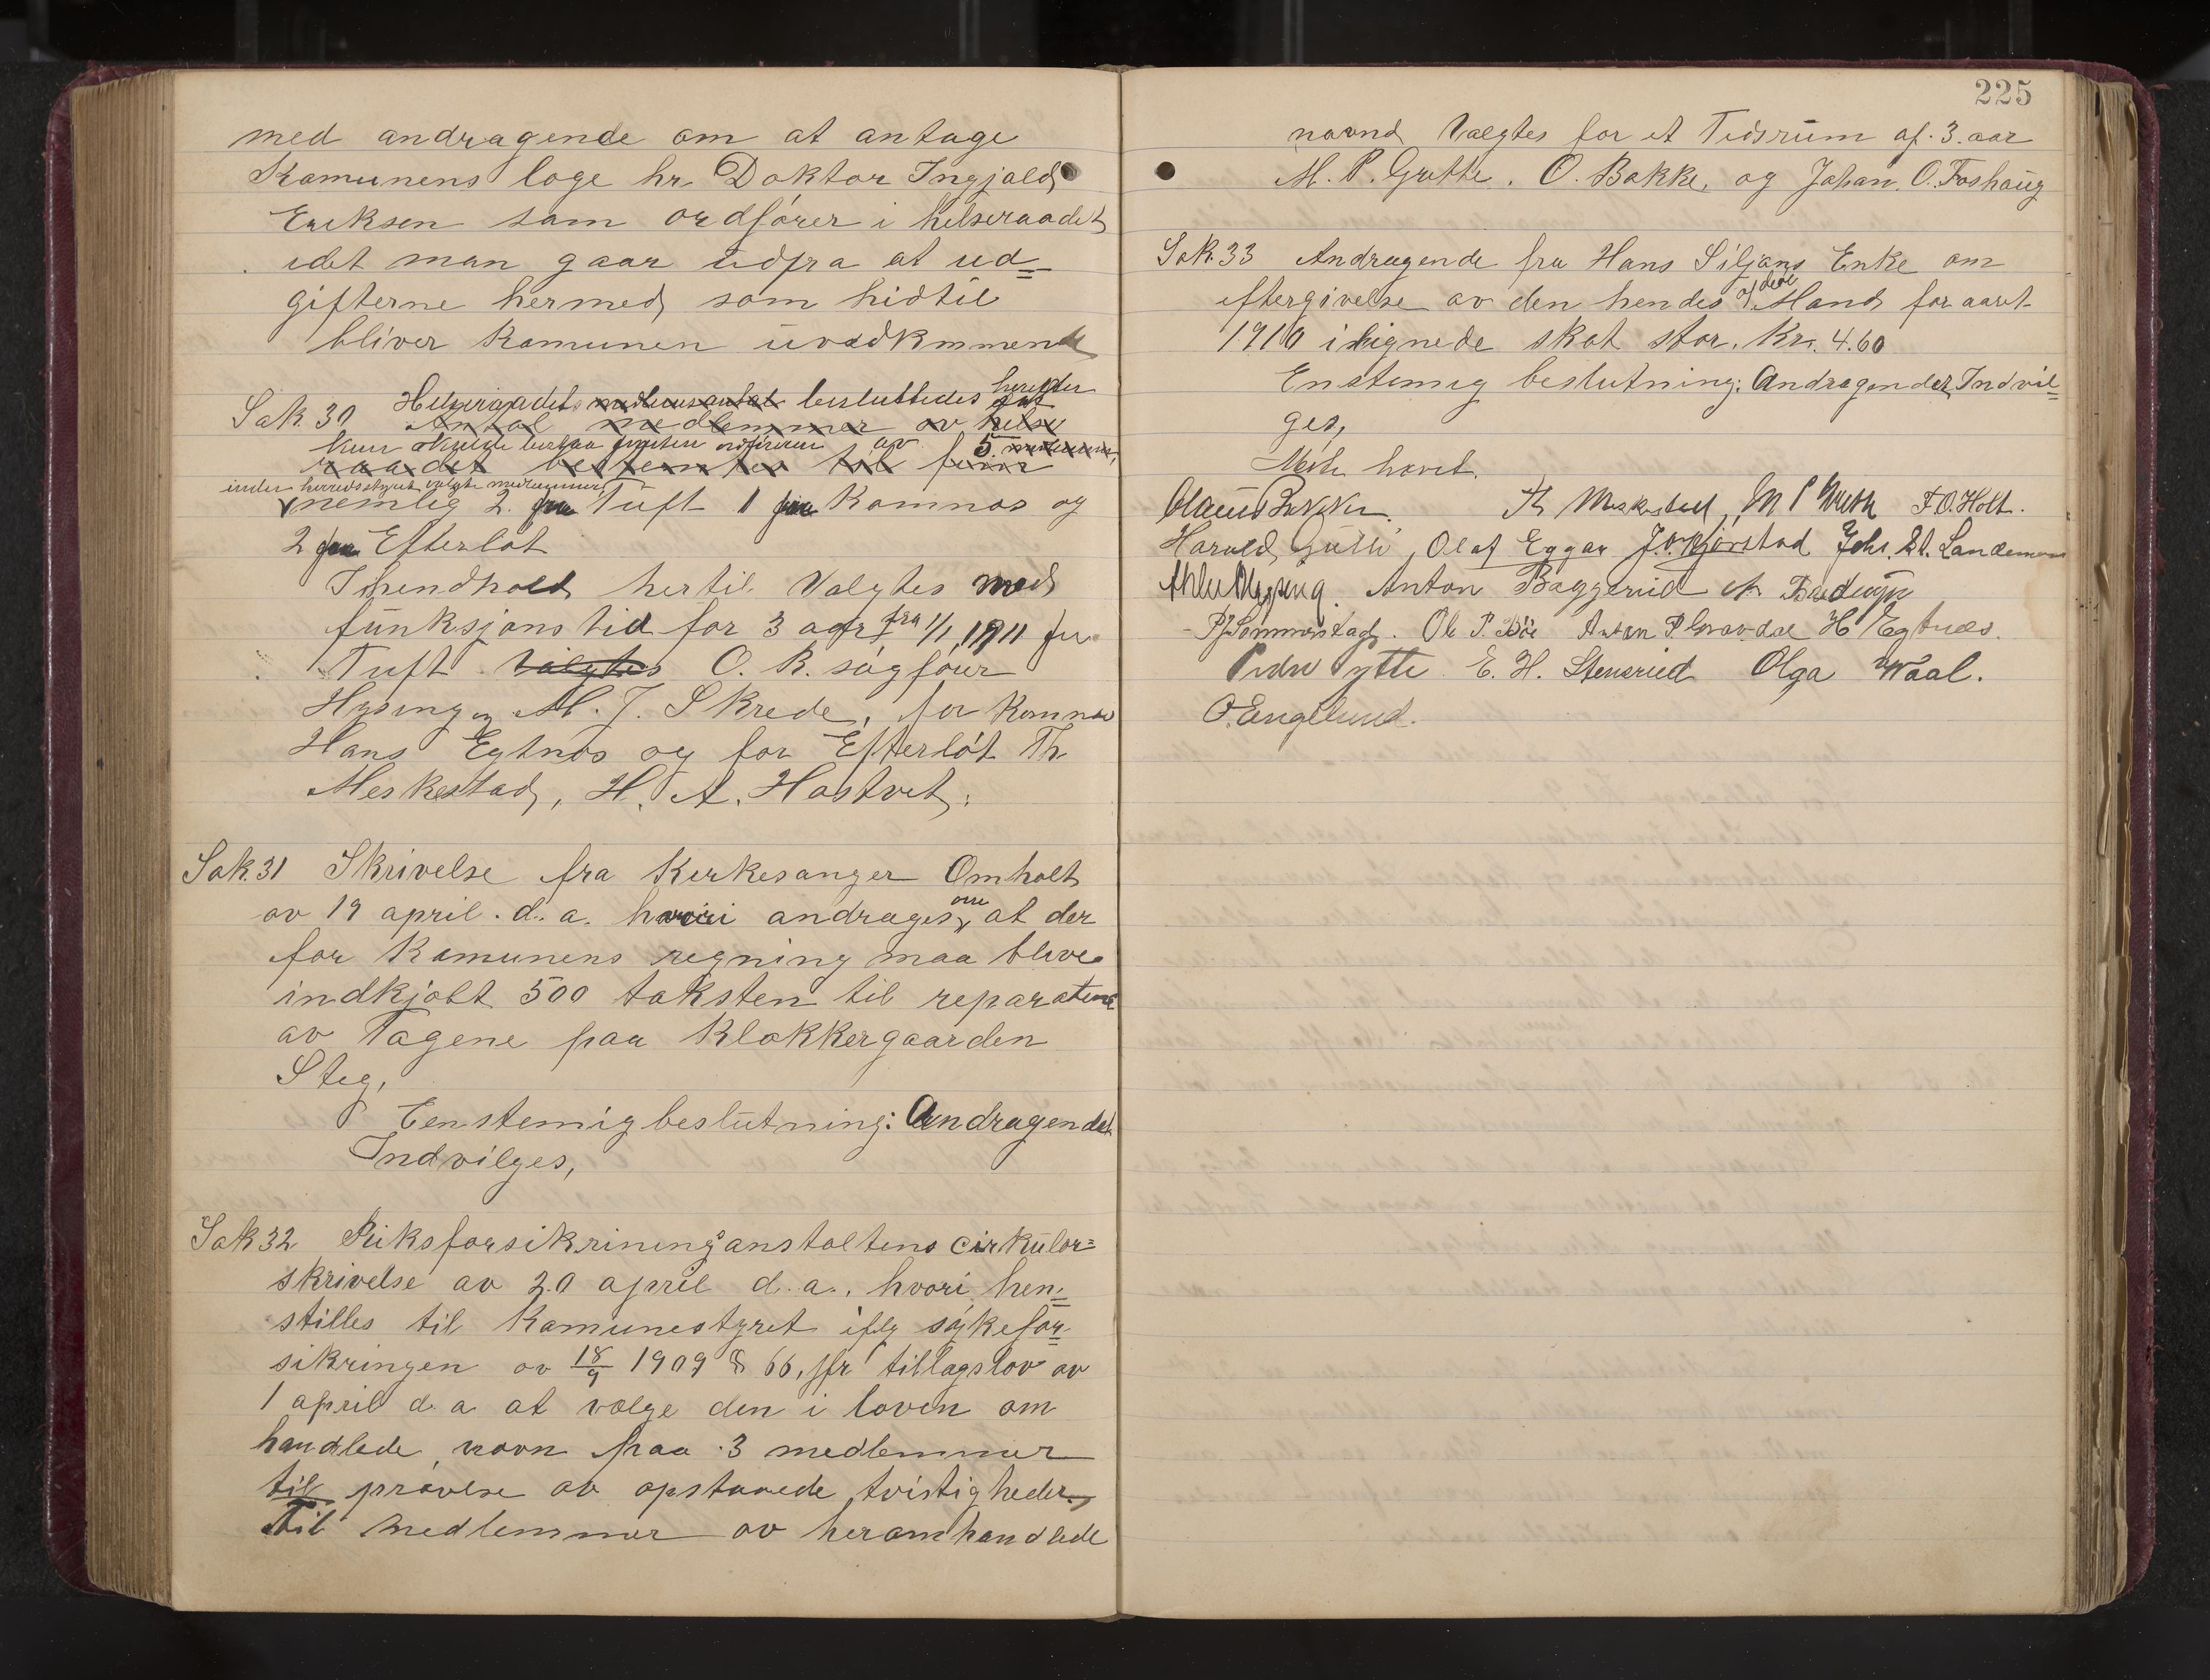 med andragende om at antage
Komunens læge hr. Doktor Ingjald
Eriksen som ordfører i helseraadet
idet man gaar udfra at ud=
gifterne hermed som hidtil
bliver Komunen uvedkmmende
Helseraadet besluttedes
Sak 30 Antal medlemmer av helse
kun av 5
raadet bestemtes til fem
inden herredsstyret valgte medlemmer,
nemlig 2 fra Tuft 1 fra Komnæs og
2 fra Efterløt
I henhold hertil Valgtes med
funksjonstid for 3 aar fra 1/1 1911 for
Tuft Valgtes O. R. sagfører
Hysing og M. J. Skrede, for Komnæs
Hans Egtnæs og for Efterløt Th
Meskestad, H. A. Hostvet.
Sak 31 Skrivelse fra Kirkesanger Omholt
om
av 19 april d. a. hvori andrages at der
for Komunens regning maa blive
indkjøbt 500 taksten til reparation
av Tagene paa Klokkergaarden
Steg,
Eenstemig beslutning: Andragendet
Indvilges,
Sak 32 Riksforsikriningsanstaltens cirkulær=
skrivelse av 20 april d. a. hvori hen=
stilles til Komunestyret iflg sykefor=
sikringen av 18/9 1909 § 66, jfr tillagslov av
1 april d. a at vælge den i loven om
handlede nævn paa 3 medlemmer
til prøvelse av opstaaede tvistigheder,
Til medlemmer av heromhandlede
225
nævnd Valgtes for et Tidsrum af 3 aar
M. P. Grette, O. Bakke, og Johan O. Foshaug
Sak 33 Andragende fra Hans Siljans Enke om
eftergivelse av den hendes afdøde Mand for aaret
1910 ilignede skat stor. Kr. 4.60
Enstemig beslutning: Andragendet Indvil=
ges,
Møte hævet.
Th Meskestad, F. O. Holt.
Harald Olaf Eggar Johs. St. Landemoen
Anton Baggerud
Ole P. Bøe Anton P. H Egtnæs.
E. H. Stensrud Olga Waal.
O. Englund.